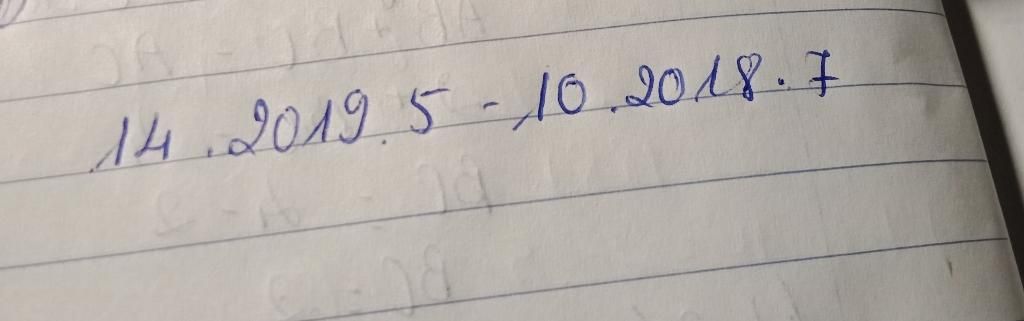 14 . 2019 . 5 - 10 . 2018 . 7